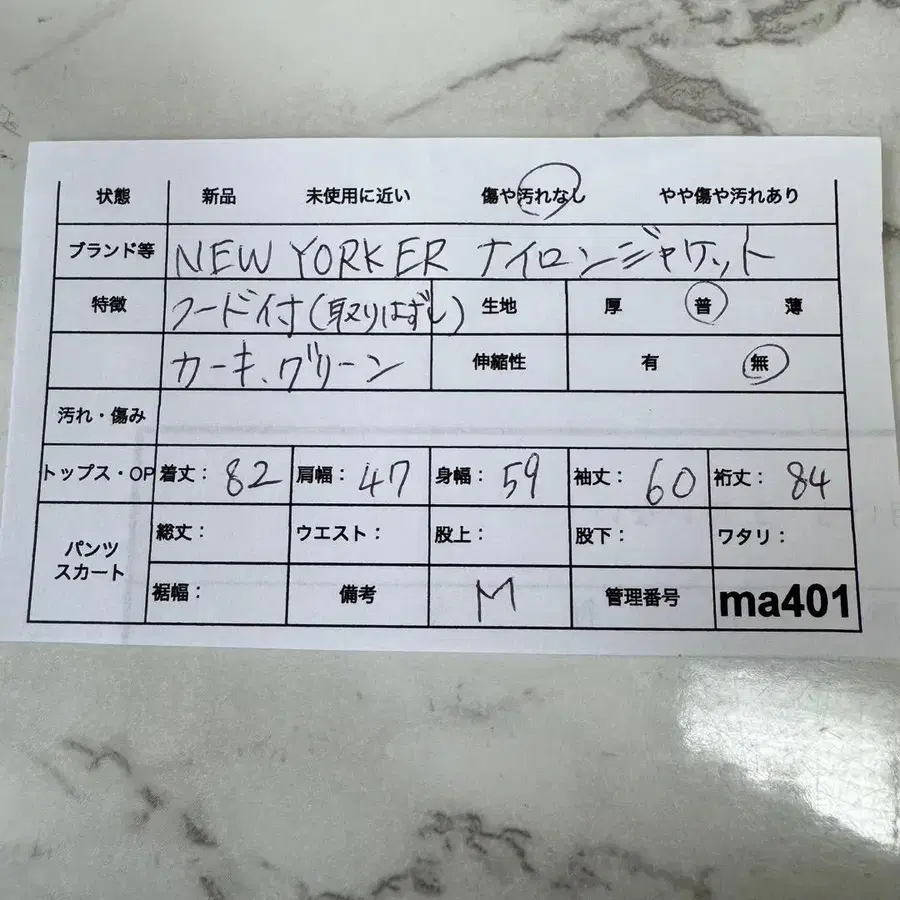 状態 新品 未使用に近い 傷や汚れなし やや傷や汚れあり
ブランド等 NEW YORKER ナイロンジャケット
特徴 フード付(取りはずし) 生地 厚 普 薄
カーキ、グリーン 伸縮性 有 無
汚れ・傷み
トップス・OP 着丈: 82 肩幅: 47 身幅: 59 袖丈: 60 裄丈: 84
パンツ スカート 総丈: ウエスト: 股上: 股下: ワタリ:
裾幅: 備考 M 管理番号 ma401